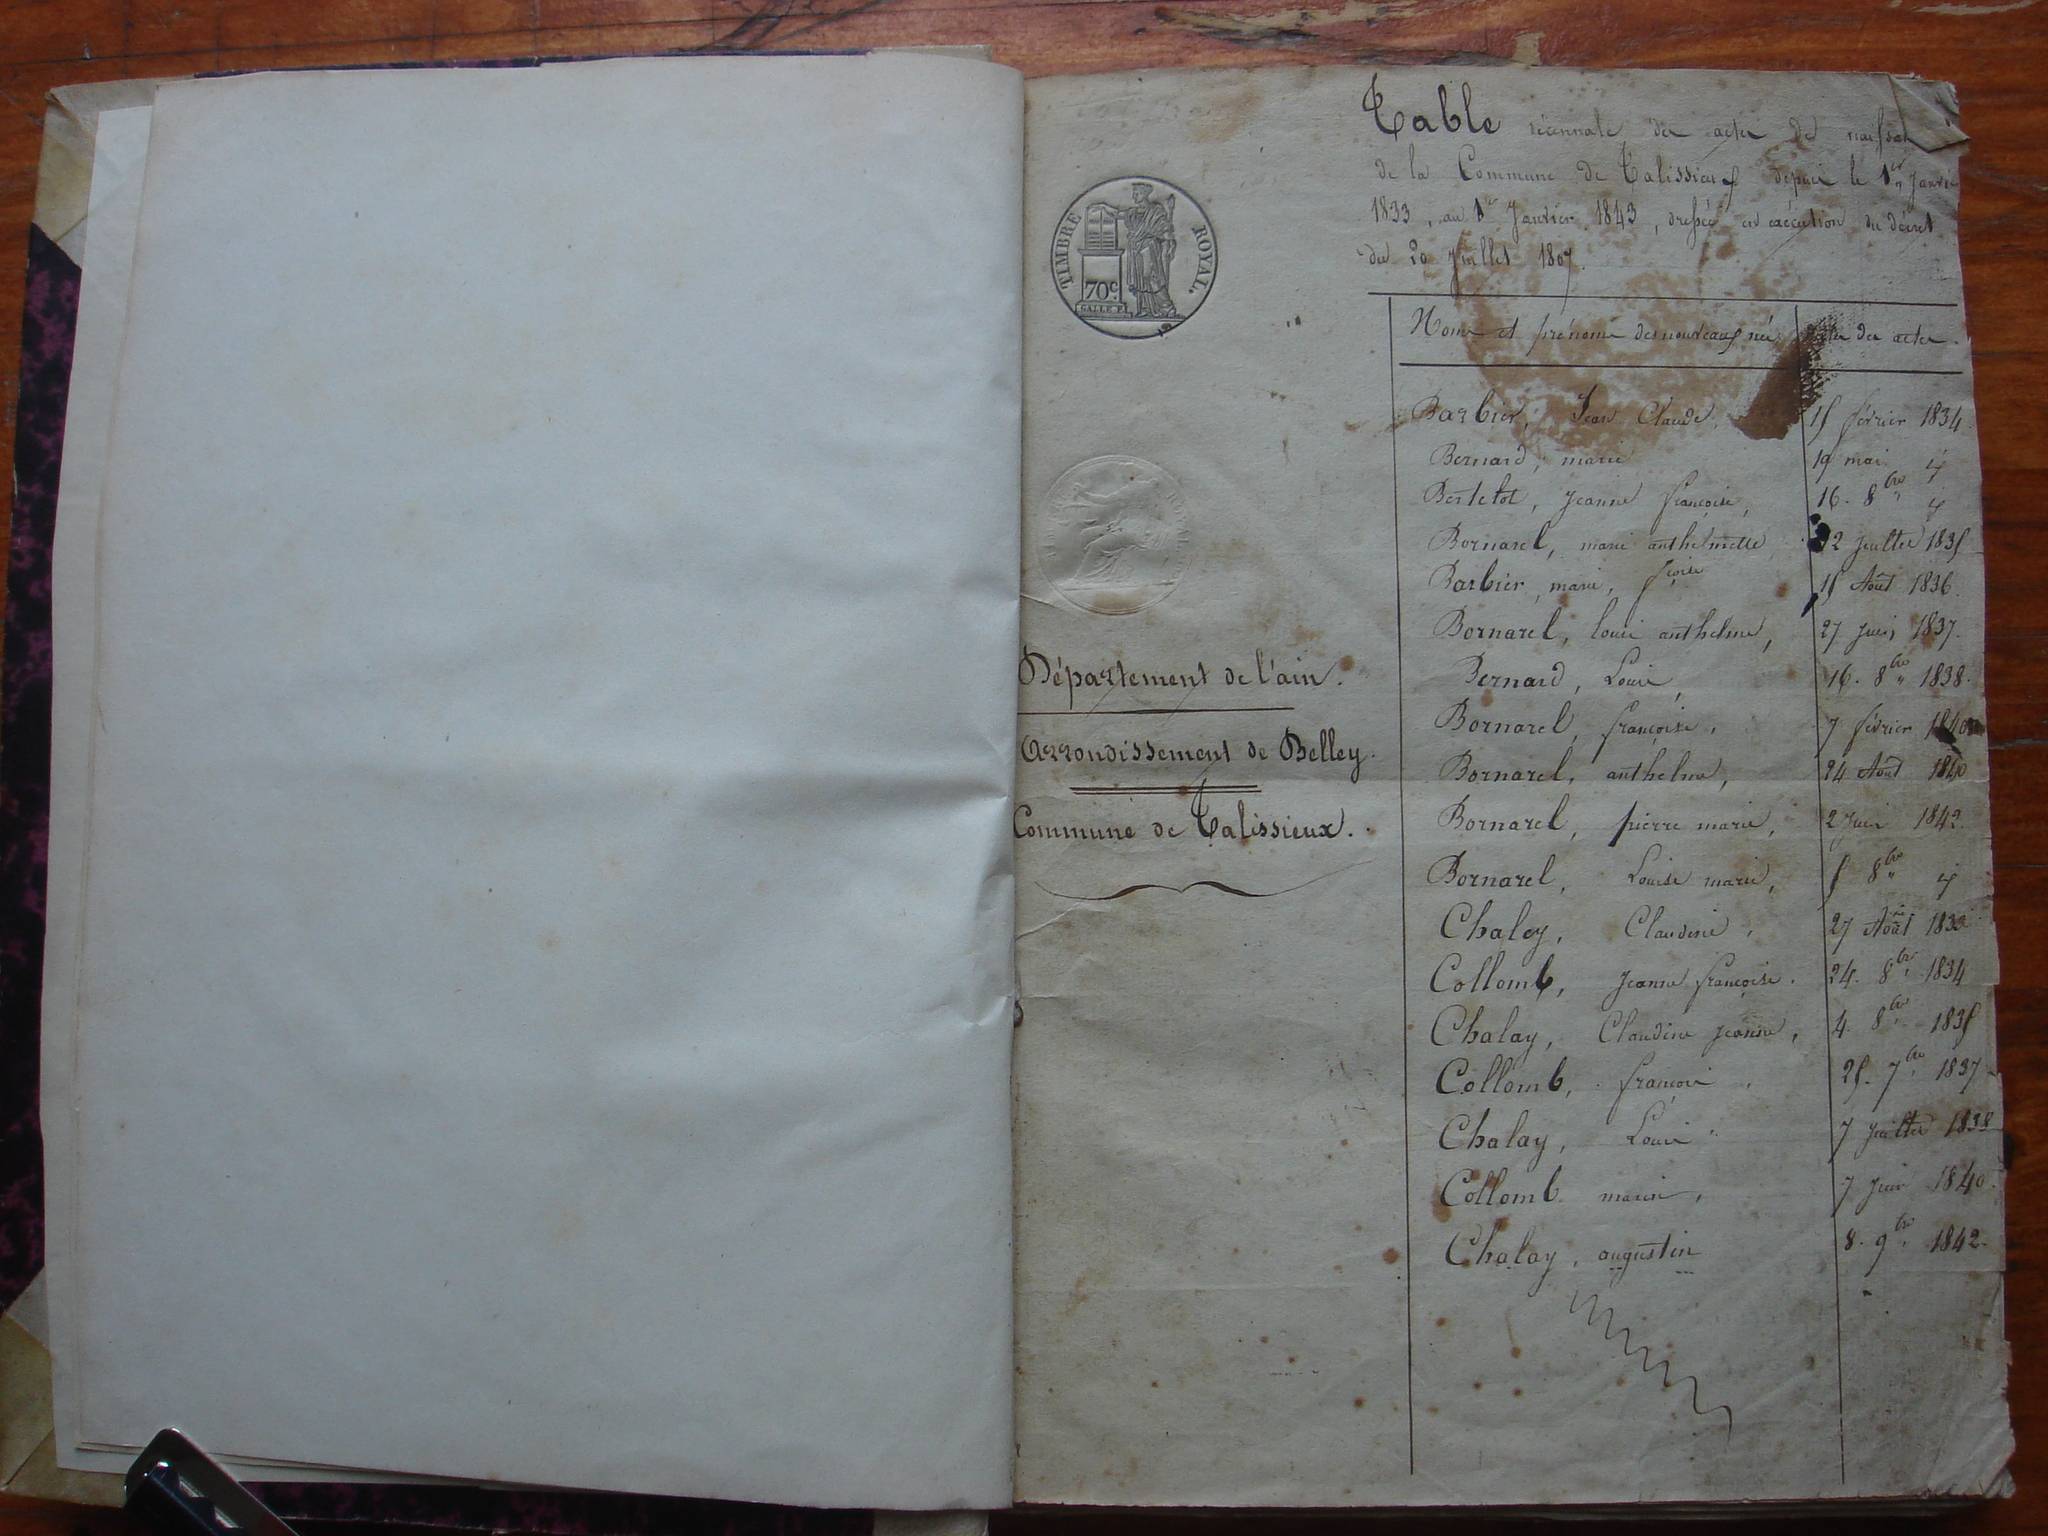 TIMBRE ROYAL.
70c.
GALLE F.
Département de l'ain.
Arrondissement de Belley.
Commune de Talissieux.
Table décennale des actes de naissan
de la Commune de Talissieux depuis le 1er Janvie
1833, au 1er Janvier 1843, dressée en exécution du décret
du 20 Juillet 1807.
Noms et prénoms des nouveaux nés Dates des actes.
Barbier, Jean Claude, 15 février 1834
Bernard, marie 19 mai id
Bertelot, jeanne françoise, 16. 8bre id
Bornarel, marie anthelmette, 12 juillet 1835
Barbier, marie, fçoise 15 Août 1836.
Bornarel, louis anthelme, 27 juin 1837.
Bernard, Louis, 16. 8bre 1838.
Bornarel, françoise, 7 février 1840
Bornarel, anthelme, 24 Août 1840
Bornarel, pierre marie, 2 Juin 1842.
Bornarel, Louise marie, 5 8bre id
Chaley, Claudine, 27 Août 1833
Collomb, jeanne françoise. 24. 8bre 1834
Chalay, Claudine jeanne, 4. 8bre 1835
Collomb, françois, 25. 7bre 1837
Chalay, Louis 7 juillet 1838
Collomb marie, 7 juin 1840.
Chalay, augustin 8. 9bre 1842.